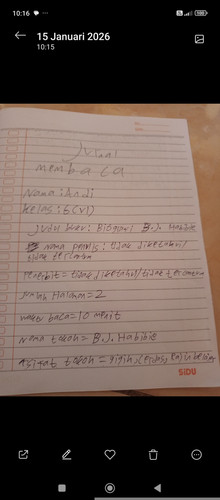 10:16
100
15 Januari 2026
10:15
Jurnal
membaca
Nama : Andi
Kelas : 6 (VI)
Judul buku : Biografi B.J. Habibie
nama penulis : tidak diketahui/
tidak tercantum
Penerbit = tidak diketahui/tidak tercantum
Jumlah Halaman = 2
waktu baca = 10 menit
Nama tokoh = B.J. Habibie
sifat tokoh = gigih, cerdas,
SiDU